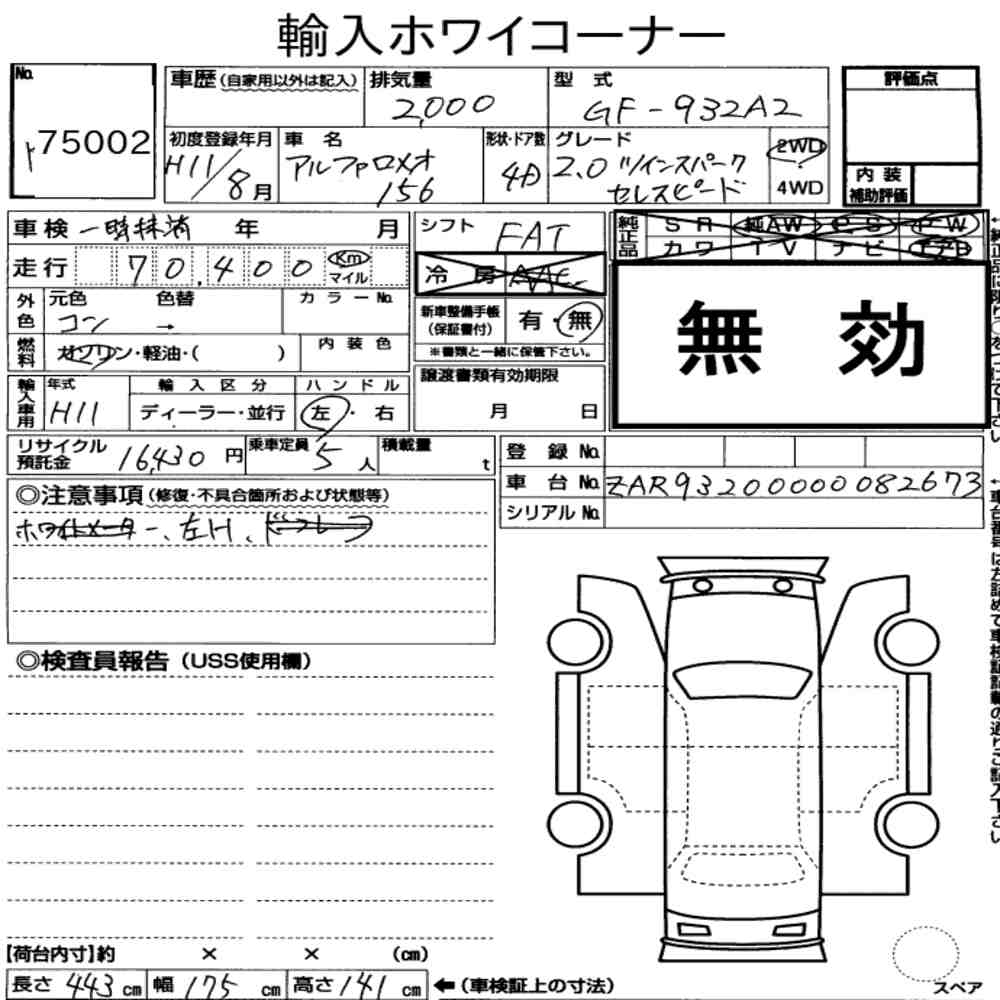 輸入ホワイコーナー
No. 75002
車歴(自家用以外は記入)
排気量 2,000
型式 GF-932A2
評価点
初度登録年月 H11/8月
車名 アルファロメオ 156
形状・ドア数 4D
グレード 2.0 ツインスパーク セレスピード
2WD
4WD
内装補助評価
車検 一時抹消 年 月
シフト FAT
純正品 SR 純AW PS PW
カワ TV ナビ エアB
走行 70,400 Km マイル
冷房 AAC
外色 元色 コン 色替 → カラーNo.
新車整備手帳(保証書付) 有・無
※書類と一緒に保管下さい。
無効
燃料 ガソリン・軽油・( ) 内装色
輸入車用 年式 H11 輸入区分 ディーラー・並行 ハンドル 左・右
譲渡書類有効期限 月 日
リサイクル預託金 16,430円 乗車定員 5人 積載量 t
登録No.
車台No. ZAR93200000082673
シリアルNo.
◎注意事項(修復・不具合箇所および状態等)
ホワイトメーター、左H、
◎検査員報告(USS使用欄)
【荷台内寸】約 × × (cm)
長さ 443cm 幅 175cm 高さ 141cm ←(車検証上の寸法)
スペア
←車台番号は左詰めで車検証記載の通りご記入下さい